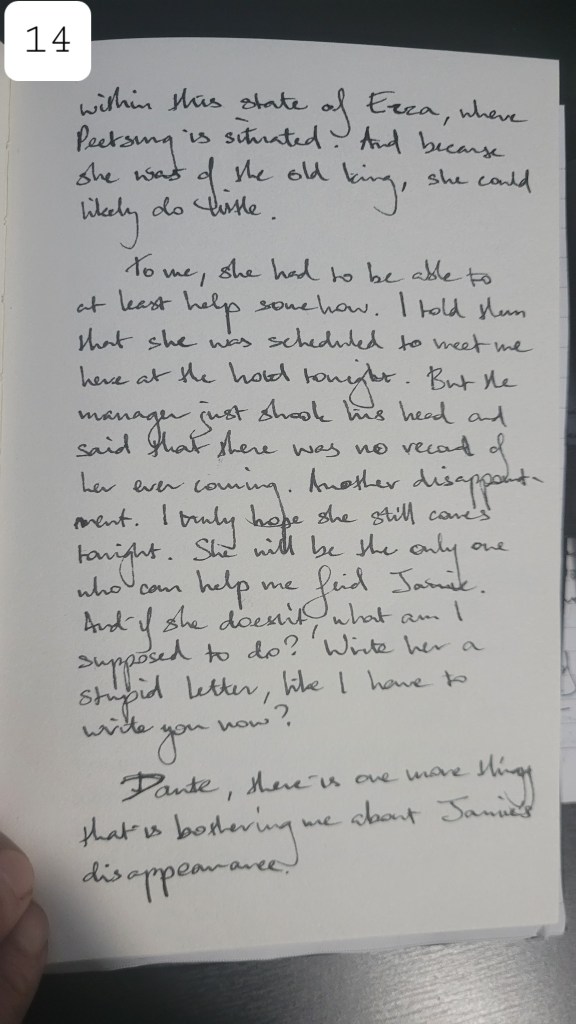 14
within this state of Ezza, where
Peetsung is situated. And because
she was of the old king, she could
likely do little.
To me, she had to be able to
at least help somehow. I told them
that she was scheduled to meet me
here at the hotel tonight. But the
manager just shook his head and
said that there was no record of
her ever coming. Another disappoint-
ment. I truly hope she still comes
tonight. She will be the only one
who can help me find Jamie.
And if she doesn't, what am I
supposed to do? Write her a
stupid letter, like I have to
write you now?
Dante, there is one more thing
that is bothering me about Jamie's
disappearance.